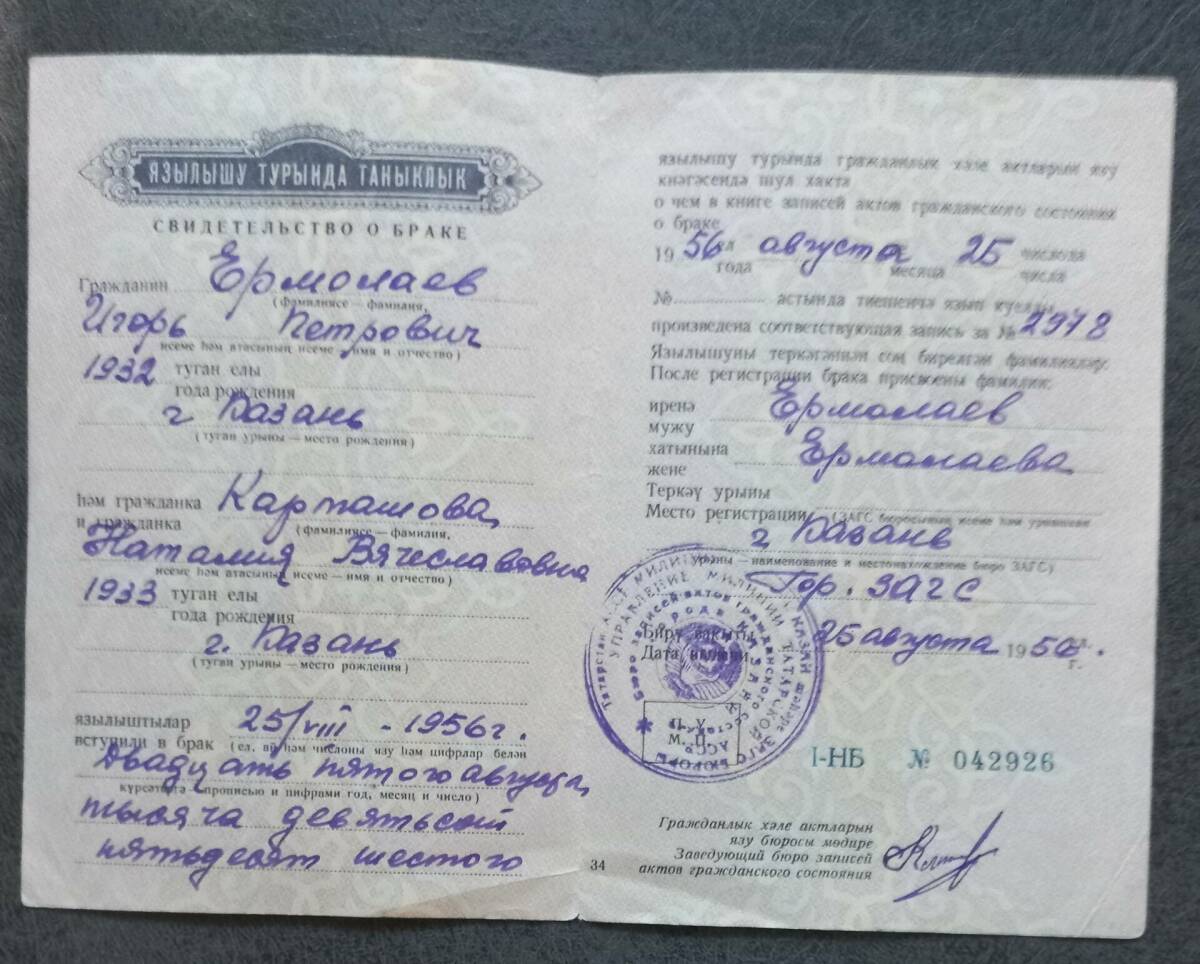 ЯЗЫЛЫШУ ТУРЫНДА ТАНЫКЛЫК
СВИДЕТЕЛЬСТВО О БРАКЕ
Гражданин Ермолаев
(фамилиясе — фамилия,
Игорь Петрович
исеме һәм атасының исеме — имя и отчество)
1932 туган елы
года рождения
г Казань
(туган урыны — место рождения)
һәм гражданка Карташова,
и гражданка
(фамилиясе — фамилия,
Наталия Вячеславовна
исеме һәм атасының исеме — имя и отчество)
1933 туган елы
года рождения
г. Казань
(туган урыны — место рождения)
язылыштылар 25/VIII - 1956 г.
вступили в брак (ел, ай һәм числоны язу һәм цифрлар белән
Двадцать пятого августа,
күрсәтергә — прописью и цифрами год, месяц и число)
тысяча девятьсот
пятьдесят шестого
язылышу турында гражданлык хәле актларын язу
кнәгәсендә шул хакта
о чем в книге записей актов гражданского состояния
о браке
1956 ел августа 25 числода
года месяца числа
№ астында тиешенчә язып куелды
произведена соответствующая запись за № 2978
Язылышуны теркәгәннән соң бирелгән фамилияләр:
После регистрации брака присвоены фамилии:
иренә Ермолаев
мужу
хатынына Ермолаева
жене
Теркәү урыны
Место регистрации (ЗАГС бюросының исеме һәм урнашкан
г Казань
урыны — наименование и местонахождение бюро ЗАГС)
Гор. ЗАГС
Бирү вакыты
Дата выдачи 25 августа 1956 г.
П. У.
М. П.
I-НБ № 042926
Гражданлык хәле актларын
язу бюросы мөдире
Заведующий бюро записей
актов гражданского состояния
34